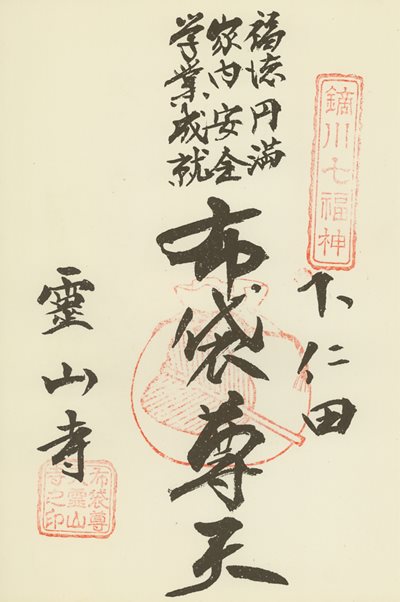 鏑川七福神
下仁田
福徳円満
家内安全
学業成就
布袋尊天
靈山寺
布袋尊
靈山
寺之印